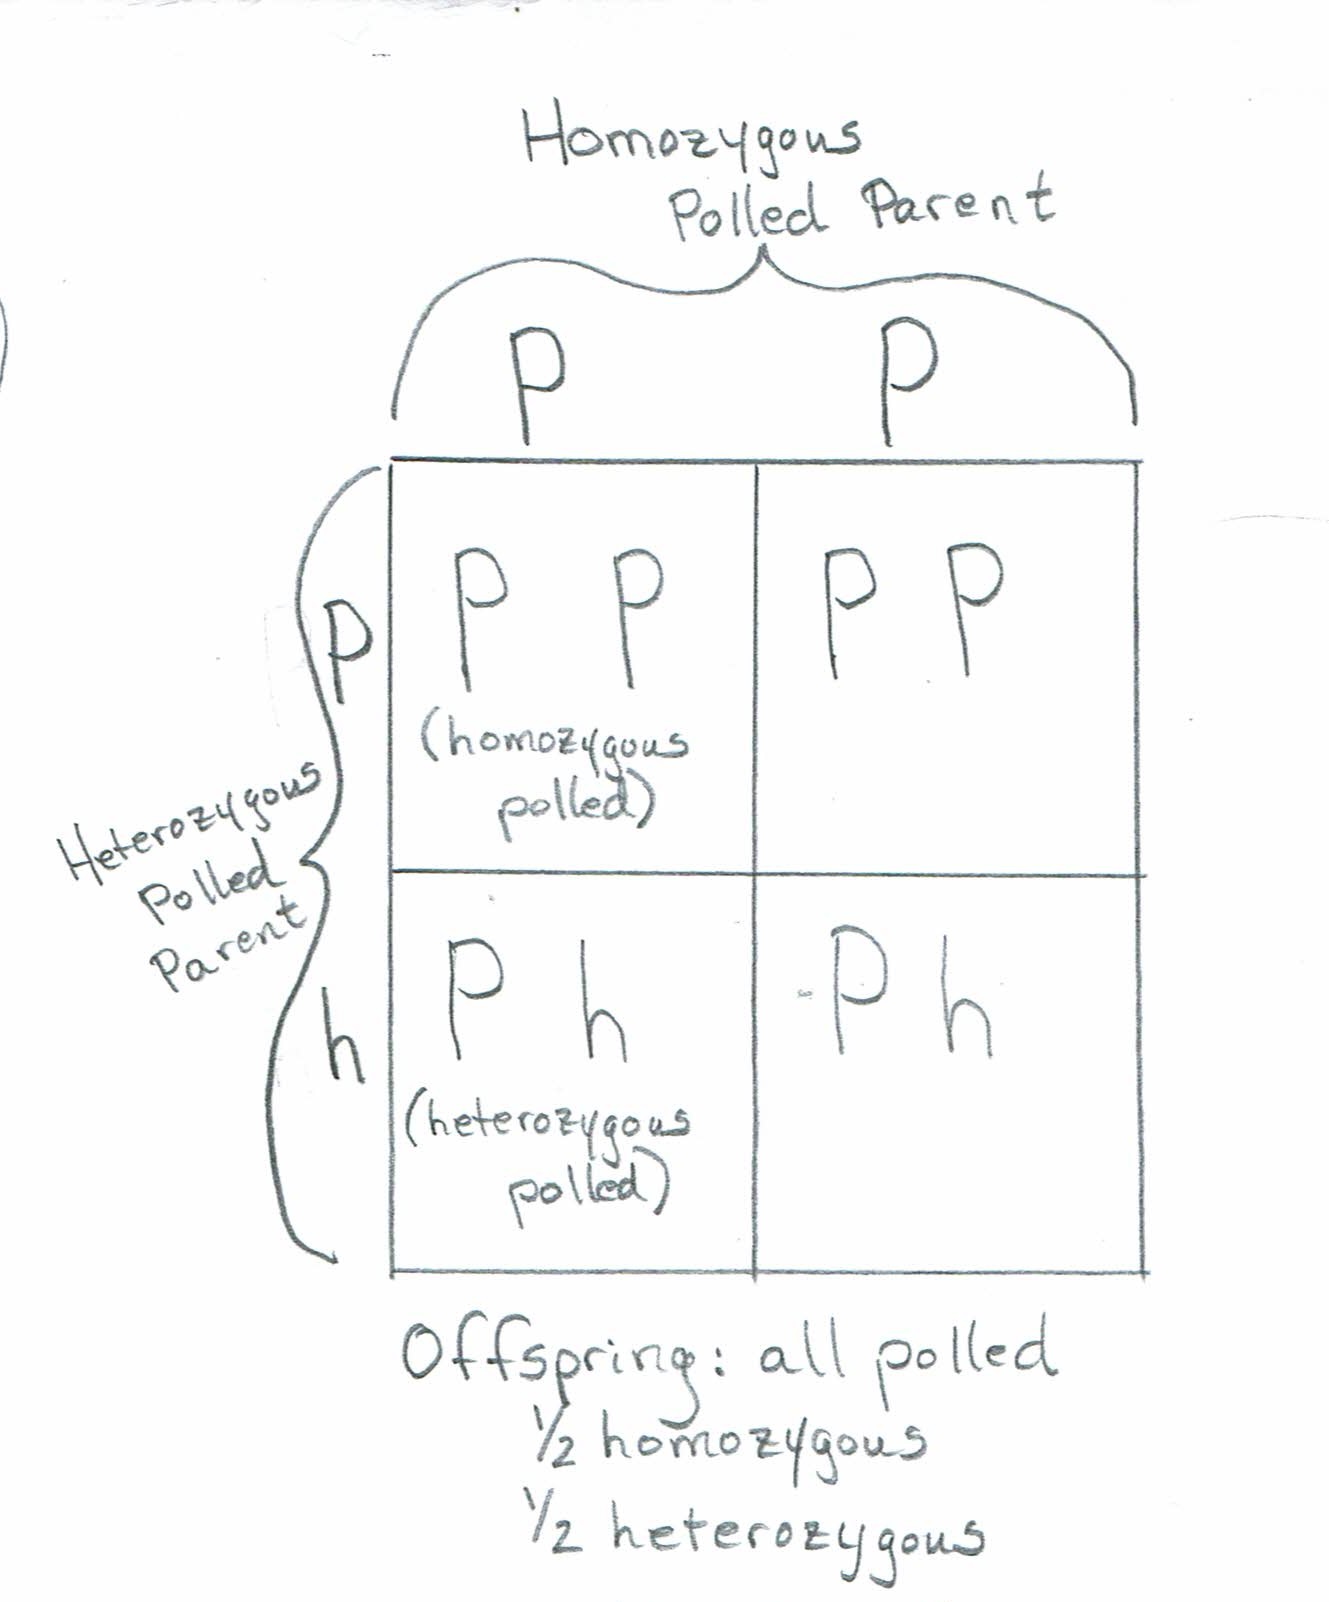 Homozygous
Polled Parent
P P
P P P P P
(homozygous
polled)
Heterozygous
Polled
Parent
h P h P h
(heterozygous
polled)
Offspring: all polled
1/2 homozygous
1/2 heterozygous